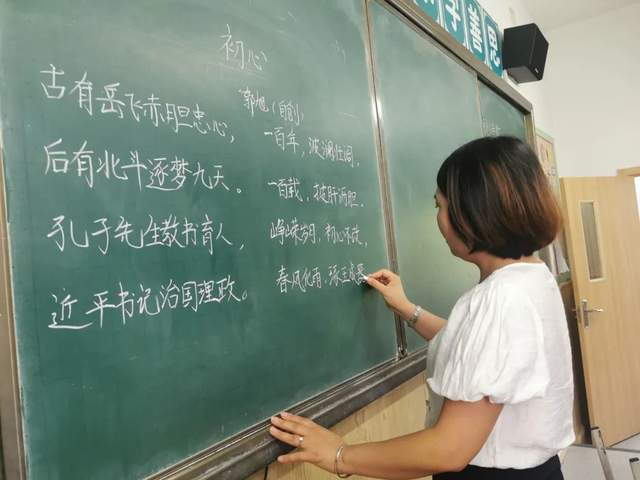 子善思
初心
古有岳飞赤胆忠心，
后有北斗逐梦九天。
孔子先生教书育人，
近平书记治国理政。
郭旭（自创）
一百年，波澜壮阔，
一百载，披肝沥胆，
峥嵘岁月，初心不改，
春风化雨，琢玉成器